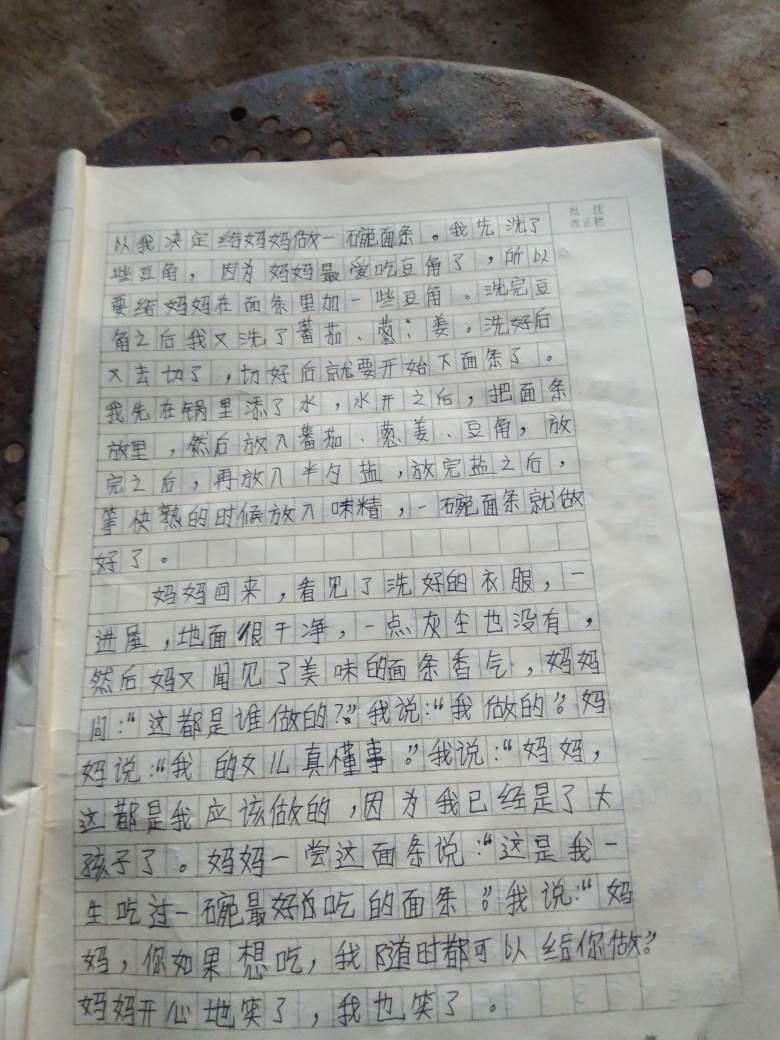 批注
改正栏
以我决定给妈妈做一碗面条。我先洗了
些豆角，因为妈妈最爱吃豆角了，所以
要给妈妈在面条里加一些豆角。洗完豆
角之后我又洗了蕃茄、葱、姜。洗好后
又去切了，切好后就要开始下面条了。
我先在锅里添了水，水开之后，把面条
放里，然后放入蕃茄、葱姜、豆角，放
完之后，再放入半勺盐，放完盐之后，
等快熟的时候放入味精，一碗面条就做
好了。
妈妈回来，看见了洗好的衣服，一
进屋，地面很干净，一点灰尘也没有，
然后妈又闻见了美味的面条香气，妈妈
问：“这都是谁做的？”我说：“我做的”。妈
妈说：“我的女儿真懂事。”我说：“妈妈，
这都是我应该做的，因为我已经是了大
孩子了。妈妈一尝这面条说：“这是我一
生吃过一碗最好吃的面条”。我说：“妈
妈，你如果想吃，我随时都可以给你做。”
妈妈开心地笑了，我也笑了。